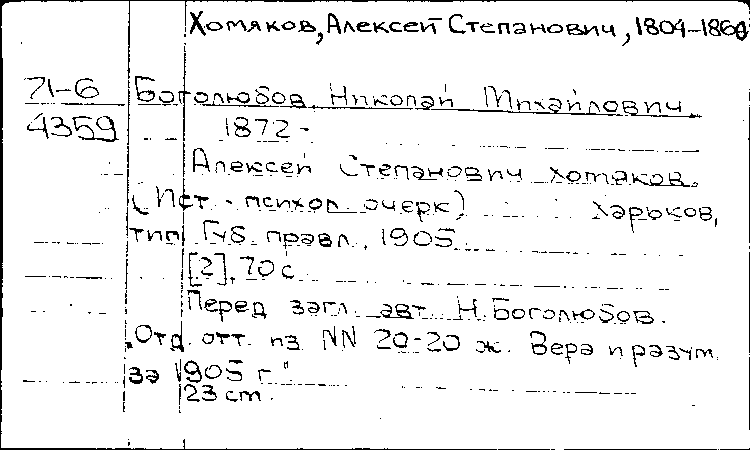 Хомяков, Алексей Степанович, 1804-1860
71-6 Боголюбов, Николай Михайлович.
4359 1872-
Алексей Степанович Хомяков.
(Ист.-психол. очерк) Харьков,
тип. Губ. правл., 1905.
[2], 70 с.
Перед загл. авт. Н. Боголюбов.
"Отд. отт. из NN 20-20 ж. Вера и разум
за 1905 г."
23 cm.